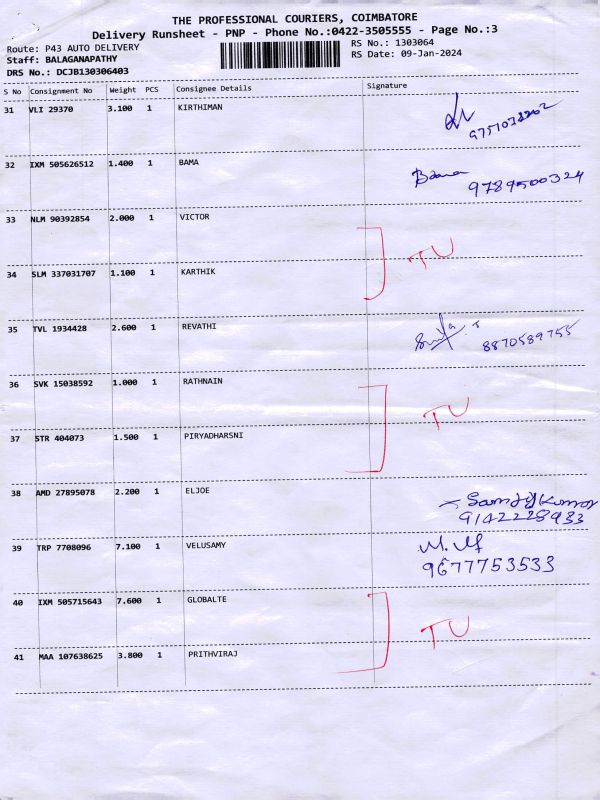 THE PROFESSIONAL COURIERS, COIMBATORE
Delivery Runsheet - PNP - Phone No.:0422-3505555 - Page No.:3
Route: P43 AUTO DELIVERY
RS No.: 1303064
Staff: BALAGANAPATHY
RS Date: 09-Jan-2024
DRS No.: DCJB130306403
S No Consignment No Weight PCS Consignee Details Signature
31 VLI 29370 3.100 1 KIRTHIMAN
32 IXM 505626512 1.400 1 BAMA Bama
9789500324
33 NLM 90392854 2.000 1 VICTOR
TU
34 SLM 337031707 1.100 1 KARTHIK
35 TVL 1934428 2.600 1 REVATHI 8870589755
36 SVK 15038592 1.000 1 RATHNAIN
TU
37 STR 404073 1.500 1 PIRYADHARSNI
38 AMD 27895078 2.200 1 ELJOE
9142228933
39 TRP 7708096 7.100 1 VELUSAMY
9677753533
40 IXM 505715643 7.600 1 GLOBALTE
TU
41 MAA 107638625 3.800 1 PRITHVIRAJ